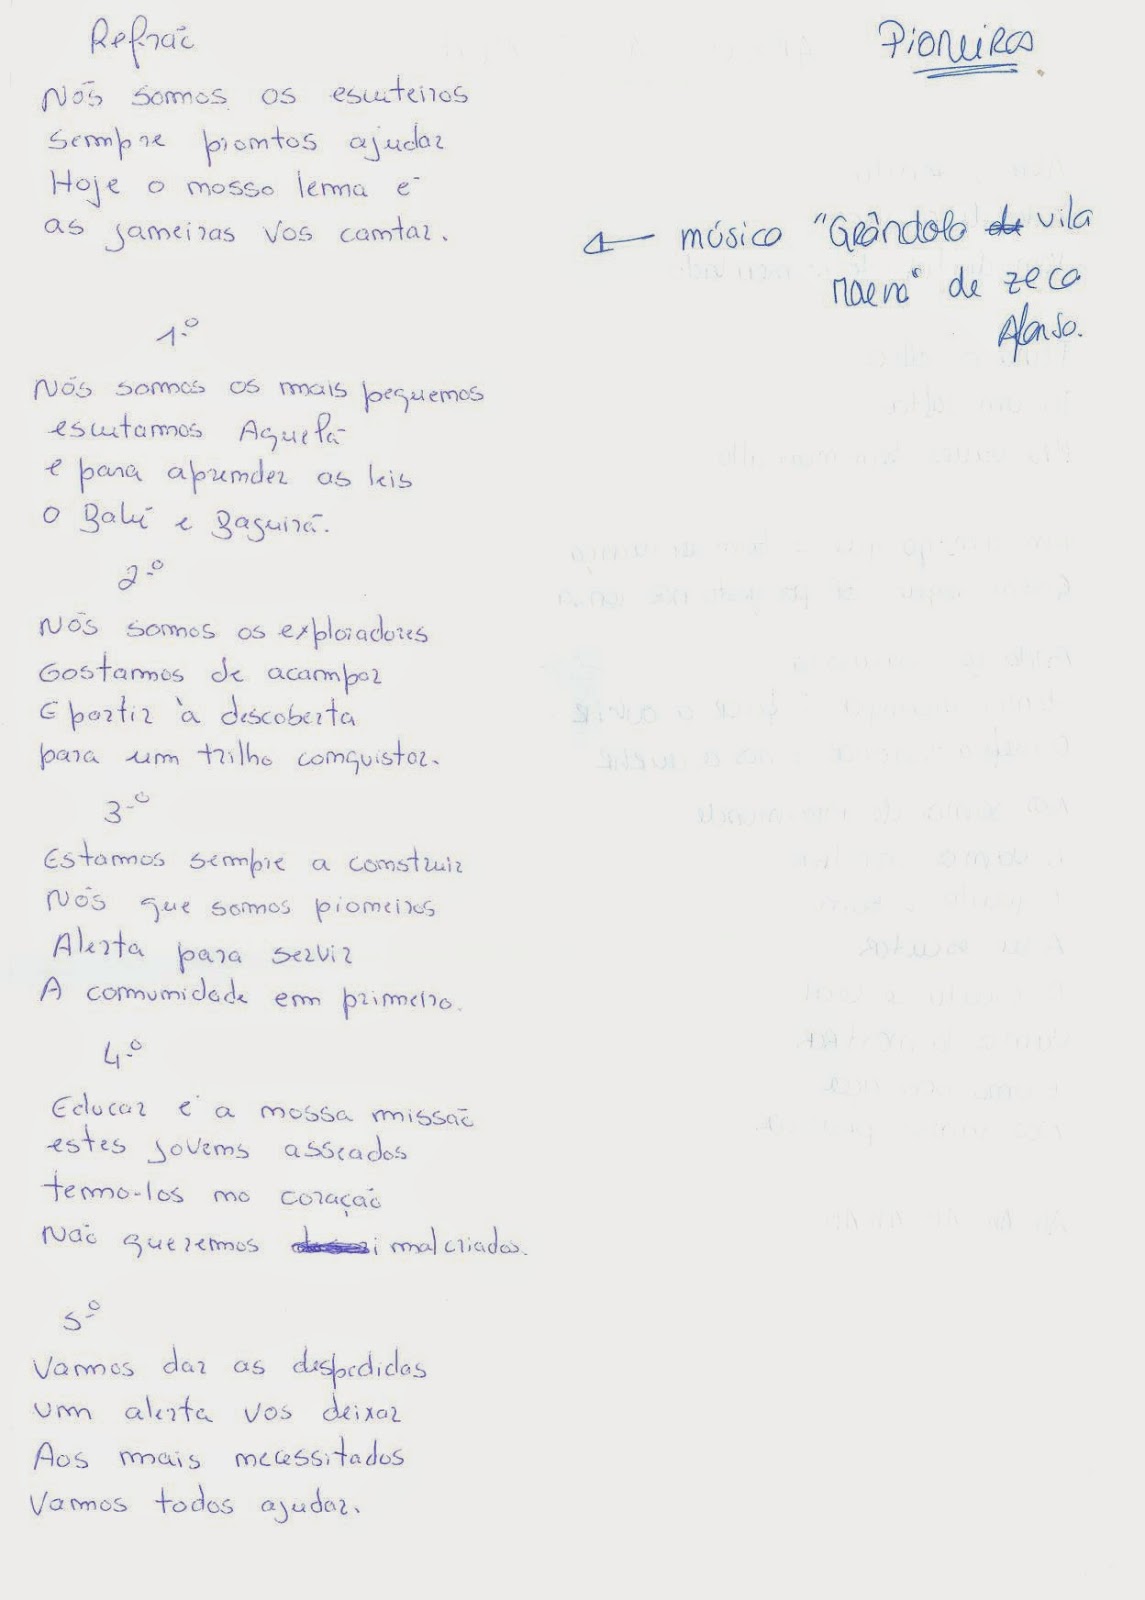 Refrão
Pioneiros
Nós somos os escuteiros
sempre prontos ajudar
Hoje o nosso lema é
as janeiras vos cantar.
música "Grândola de vila
morena" de zeca
Afonso.
1º
Nós somos os mais pequenos
escutamos Aquelá
e para aprender as leis
o Balú e Baguirá.
2º
Nós somos os exploradores
Gostamos de acampar
E partir à descoberta
para um trilho conquistar.
3º
Estamos sempre a construir
Nós que somos pioneiros
Alerta para servir
A comunidade em primeiro.
4º
Educar é a nossa missão
estes jovens asseados
temo-los no coração
Não queremos malcriados.
5º
Vamos dar as despedidas
um alerta vos deixar
Aos mais necessitados
Vamos todos ajudar.